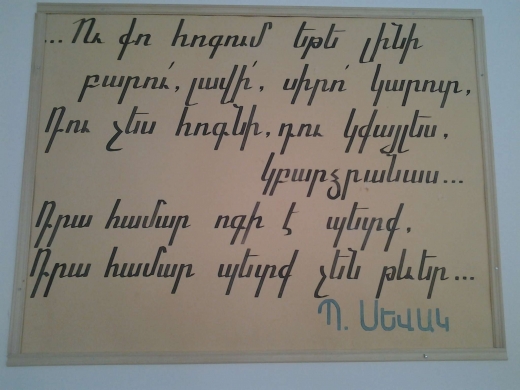 ...Ու քո հոգում եթե լինի
բարու՛, լավի՛, սիրո՛ կարոտ,
Դու չես հոգնի, դու կքայլես,
կբարձրանաս...
Դրա համար ոգի է պետք,
Դրա համար պետք չեն թևեր...
Պ. ՍԵՎԱԿ